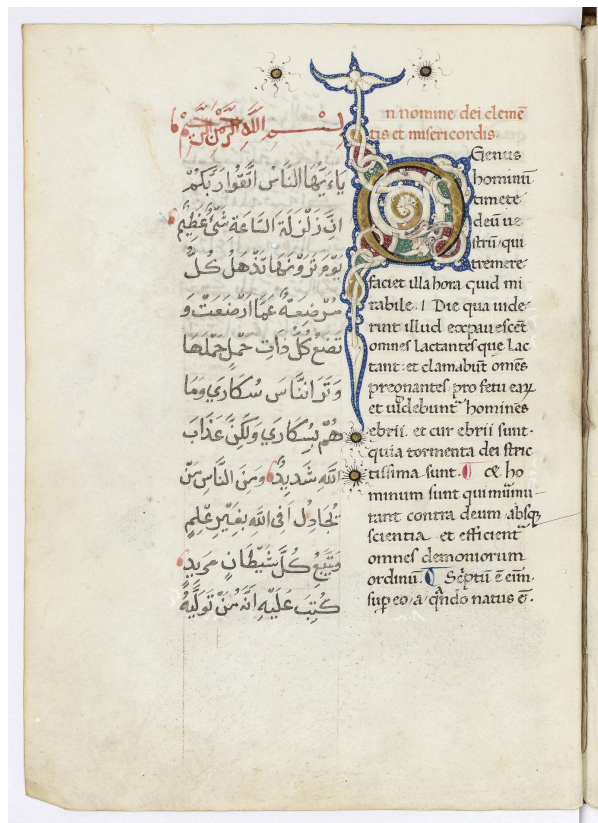 بِسْمِ اللَّهِ الرَّحْمَنِ الرَّحِيمِ
ياءيّها النّاس اتّقوا ربّكم
انّ زلزلة السّاعة شىءٌ عظيمٌ
يوم ترونها تذهل كلّ
مرضعةٍ عمّا ارضعت و
تضع كلّ ذات حملٍ حملها
وترا النّاس سكاري وما
هم بسكاري ولكنّ عذاب
الله شديدٌ ومن النّاس من
يجادل فى الله بغير علمٍ
ويتّبع كلّ شيطانٍ مريدٍ
كتب عليه انّه من تولّيه
n nomine dei clemē
tis et misericordis.
O Genus
hominū
timete
deū ue
strū, qui
tremere
faciet illa hora quid mi
rabile. Die qua uide
rint illud expauescēt
omnes Lactantes que Lac
tant: et clamabūt omēs
pregnantes, pro fetu eaꝝ
et uidebunt homines
ebrii. et cur ebrii sunt.
quia tormenta dei stric
tissima sunt. ¶ Et ho
minum sunt qui
rant contra deum absqꝫ
scientia. et efficient
omnes demoniorum
ordinū. ¶ Sc̄ptū ē eīm.
suꝑ eo, a qn̄do natus ē.